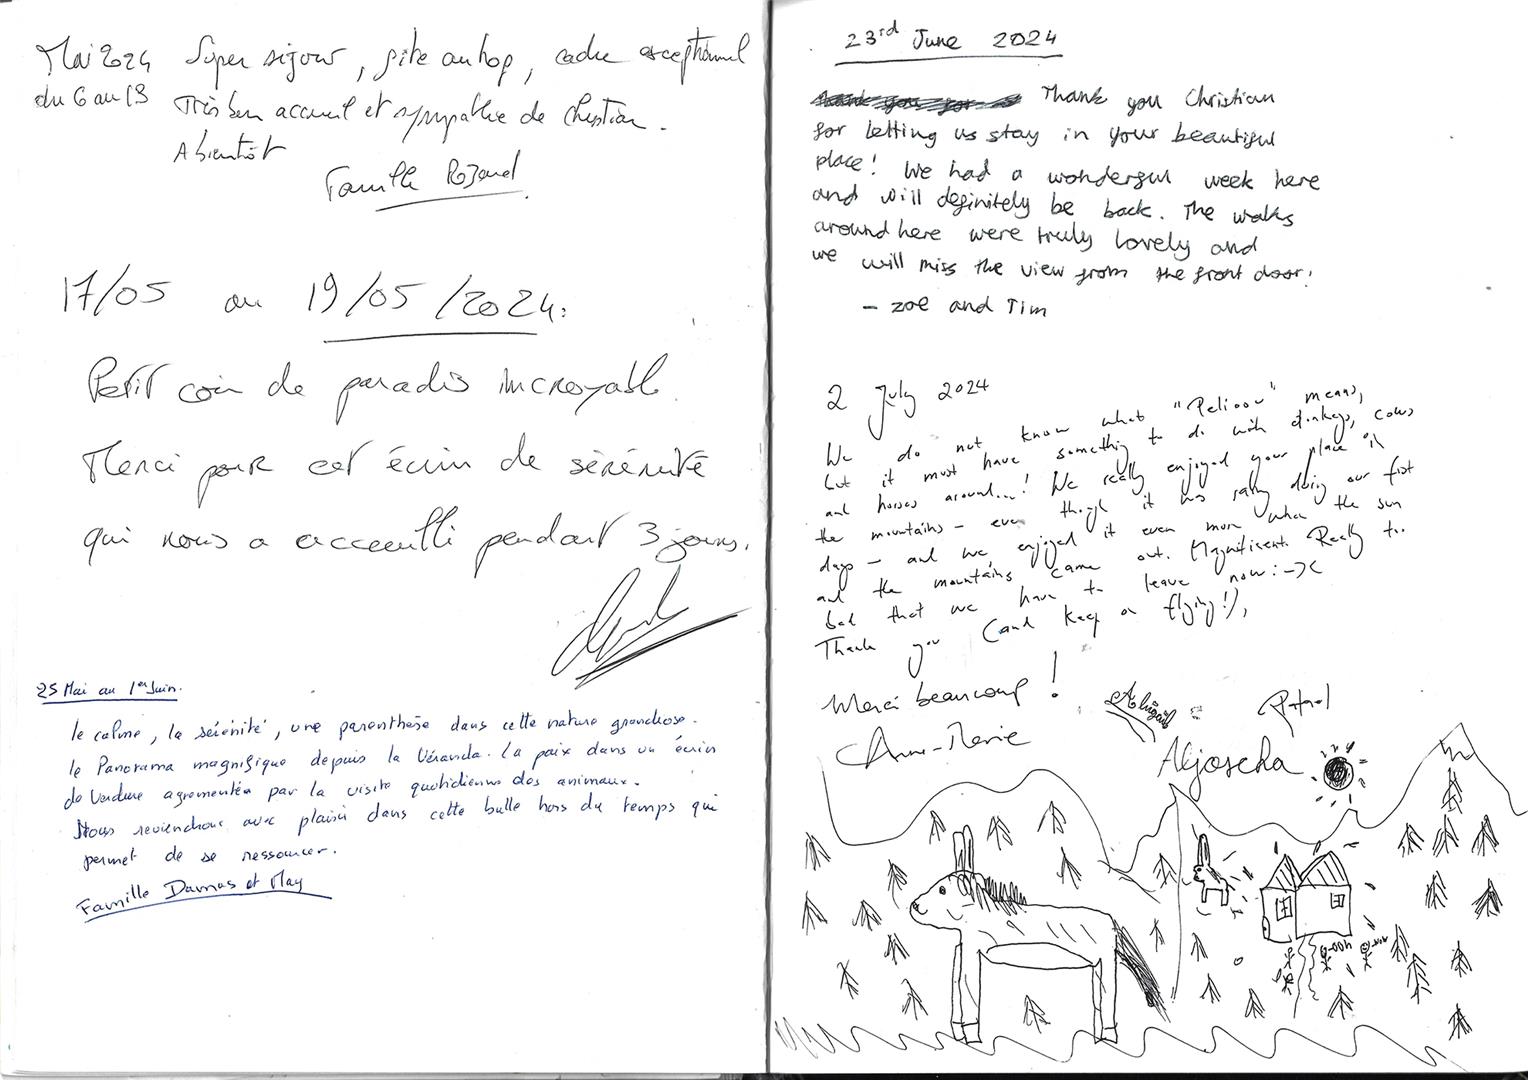 Mai 2024 Super séjour, gîte au top, cadre exceptionnel
du 6 au 13 Très bon accueil et sympathie de Christian.
A bientôt
Famille
17/05 au 19/05/2024:
Petit coin de paradis incroyable.
Merci pour cet écrin de sérénité
qui nous a accueilli pendant 3 jours.
25 Mai au 1er Juin.
le calme, la sérénité, une parenthèse dans cette nature grandiose.
le Panorama magnifique depuis la Véranda. La paix dans un écrin
de Verdure agrementée par la visite quotidienne des animaux.
Nous reviendrons avec plaisir dans cette bulle hors du temps qui
permet de se ressourcer.
Famille Damas et May
23rd June 2024
Thank you Christian
for letting us stay in your beautiful
place! We had a wonderful week here
and will definitely be back. The walks
around here were truly lovely and
we will miss the view from the front door!
- zoe and Tim
2 July 2024
We do not know what "Pelioou" means,
but it must have something to do with donkeys, cows
and horses around...! We really enjoyed your place in
the mountains - even though it was rainy during our first
days - and we enjoyed it even more when the sun
and the mountains came out. Magnificent. Really too
bad that we have to leave now :-)(
Thank you (and keep on flying!),
Merci beaucoup !
Abigail
Anne-Marie
Aljoscha